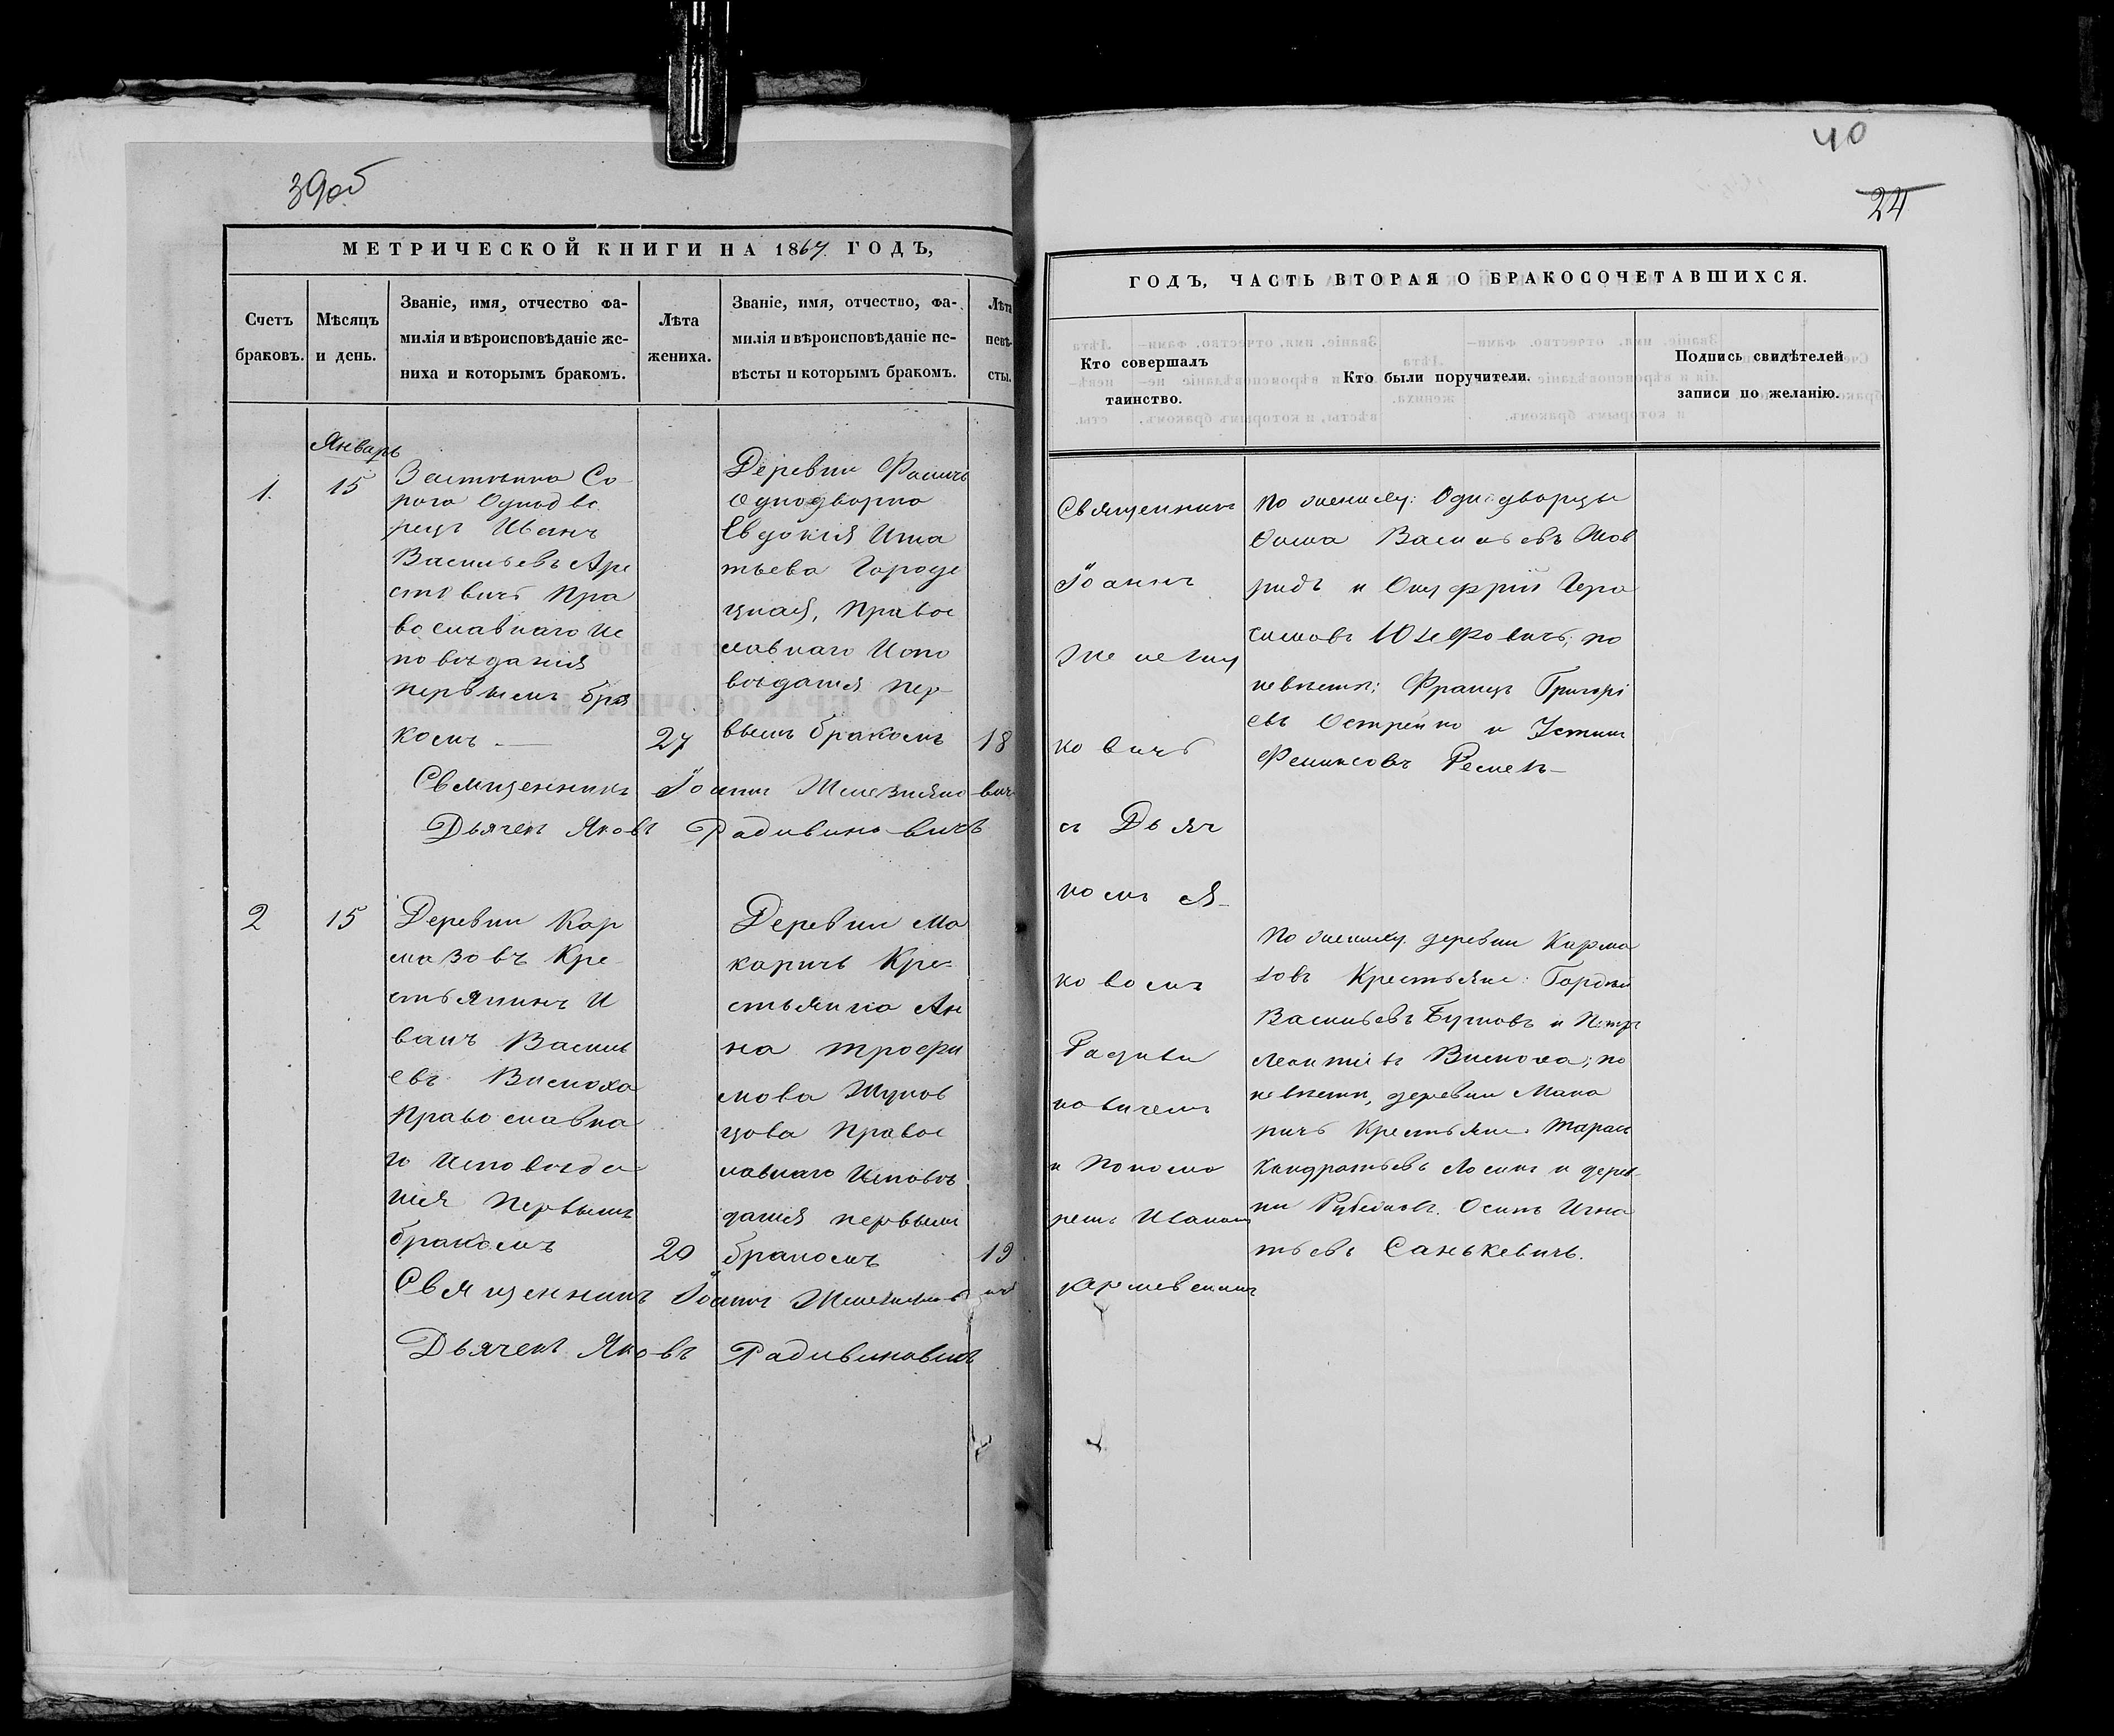 39об
МЕТРИЧЕСКОЙ КНИГИ НА 1867 ГОДЪ,
Счетъ
браковъ.
Мѣсяцъ
и день.
Званіе, имя, отчество фа-
милія и вѣроисповѣданіе же-
ниха и которымъ бракомъ.
Лѣта
жениха.
Званіе, имя, отчество, фа-
милія и вѣроисповѣданіе не-
вѣсты и которымъ бракомъ.
Лѣта
невѣ-
сты.
Январь
1.
15
Застѣнка Со
рога Однодво
рецъ Иванъ
Васильевъ Аре
стовичъ Пра
вославнаго Ис
повѣданія
первымъ бра
комъ.
27
Деревни
Однодворка
Евдокія Игна
тьева Городе
цкая, Правос
лавнаго Испо
вѣданія пер
вымъ бракомъ
18
Священникъ Іоаннъ Железняковичъ
Дьячекъ Яковъ Радивиновичъ
2
15
Деревни Кар
мазовъ Кре
стьянинъ И
ванъ Василь
евъ Висмоха
Православна
го Исповѣда
нія Первымъ
бракомъ
20
Деревни Ма
каричъ Кре-
стьянка Ан
на Трофи
мова Жуков
цова Правос
лавнаго Исповѣ
данія первымъ
бракомъ
19
Священникъ Іоаннъ
Дьячекъ Яковъ Радивиновичъ
40
24
ГОДЪ, ЧАСТЬ ВТОРАЯ О БРАКОСОЧЕТАВШИХСЯ.
Кто совершалъ
таинство.
Кто были поручители.
Подпись свидѣтелей
записи по желанію.
Священникъ
Іоаннъ
ковичъ
съ Дьяч
комъ Я-
ковомъ
Радиви
новичемъ
и Понома
ремъ Иваномъ
По жениху: Однодворцы
Васильевъ
и Онуфрій Гера
симовъ Юзефовичъ; по
невѣстѣ: Францъ Григорі
евъ Острейко и Устинъ
По жениху деревни Карма
зовъ Крестьяне: Гордѣй
Васильевъ и Петръ
Леонтьевъ Висмоха; по
невѣстѣ, деревни Мака
ричъ Крестьяне: Тарасъ
Кондратьевъ Лосикъ и дерев-
ни Осипъ Игна
тьевъ Санькевичъ.